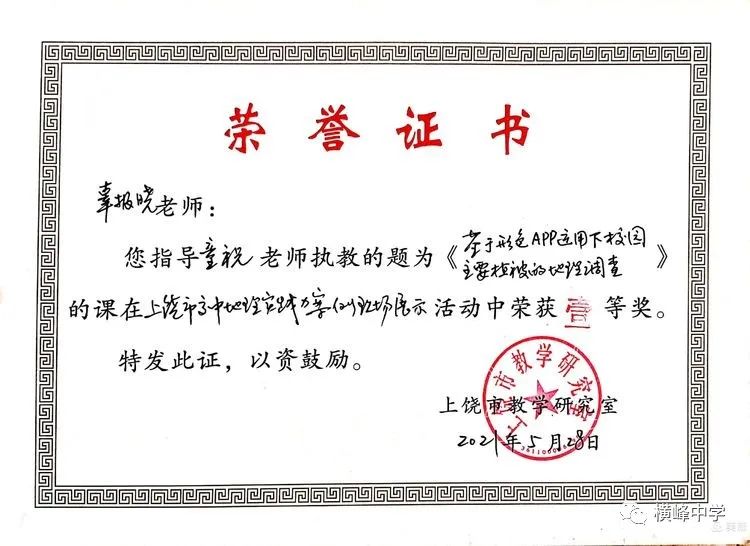 荣誉证书
辜报晓老师：
您指导童祝老师执教的题为《基于形色APP运用下校园
主要植被的地理调查》
的课在上饶市高中地理实践力案例现场展示活动中荣获壹等奖。
特发此证，以资鼓励。
上饶市教学研究室
上饶市教学研究室
2021年5月28日
横峰中学